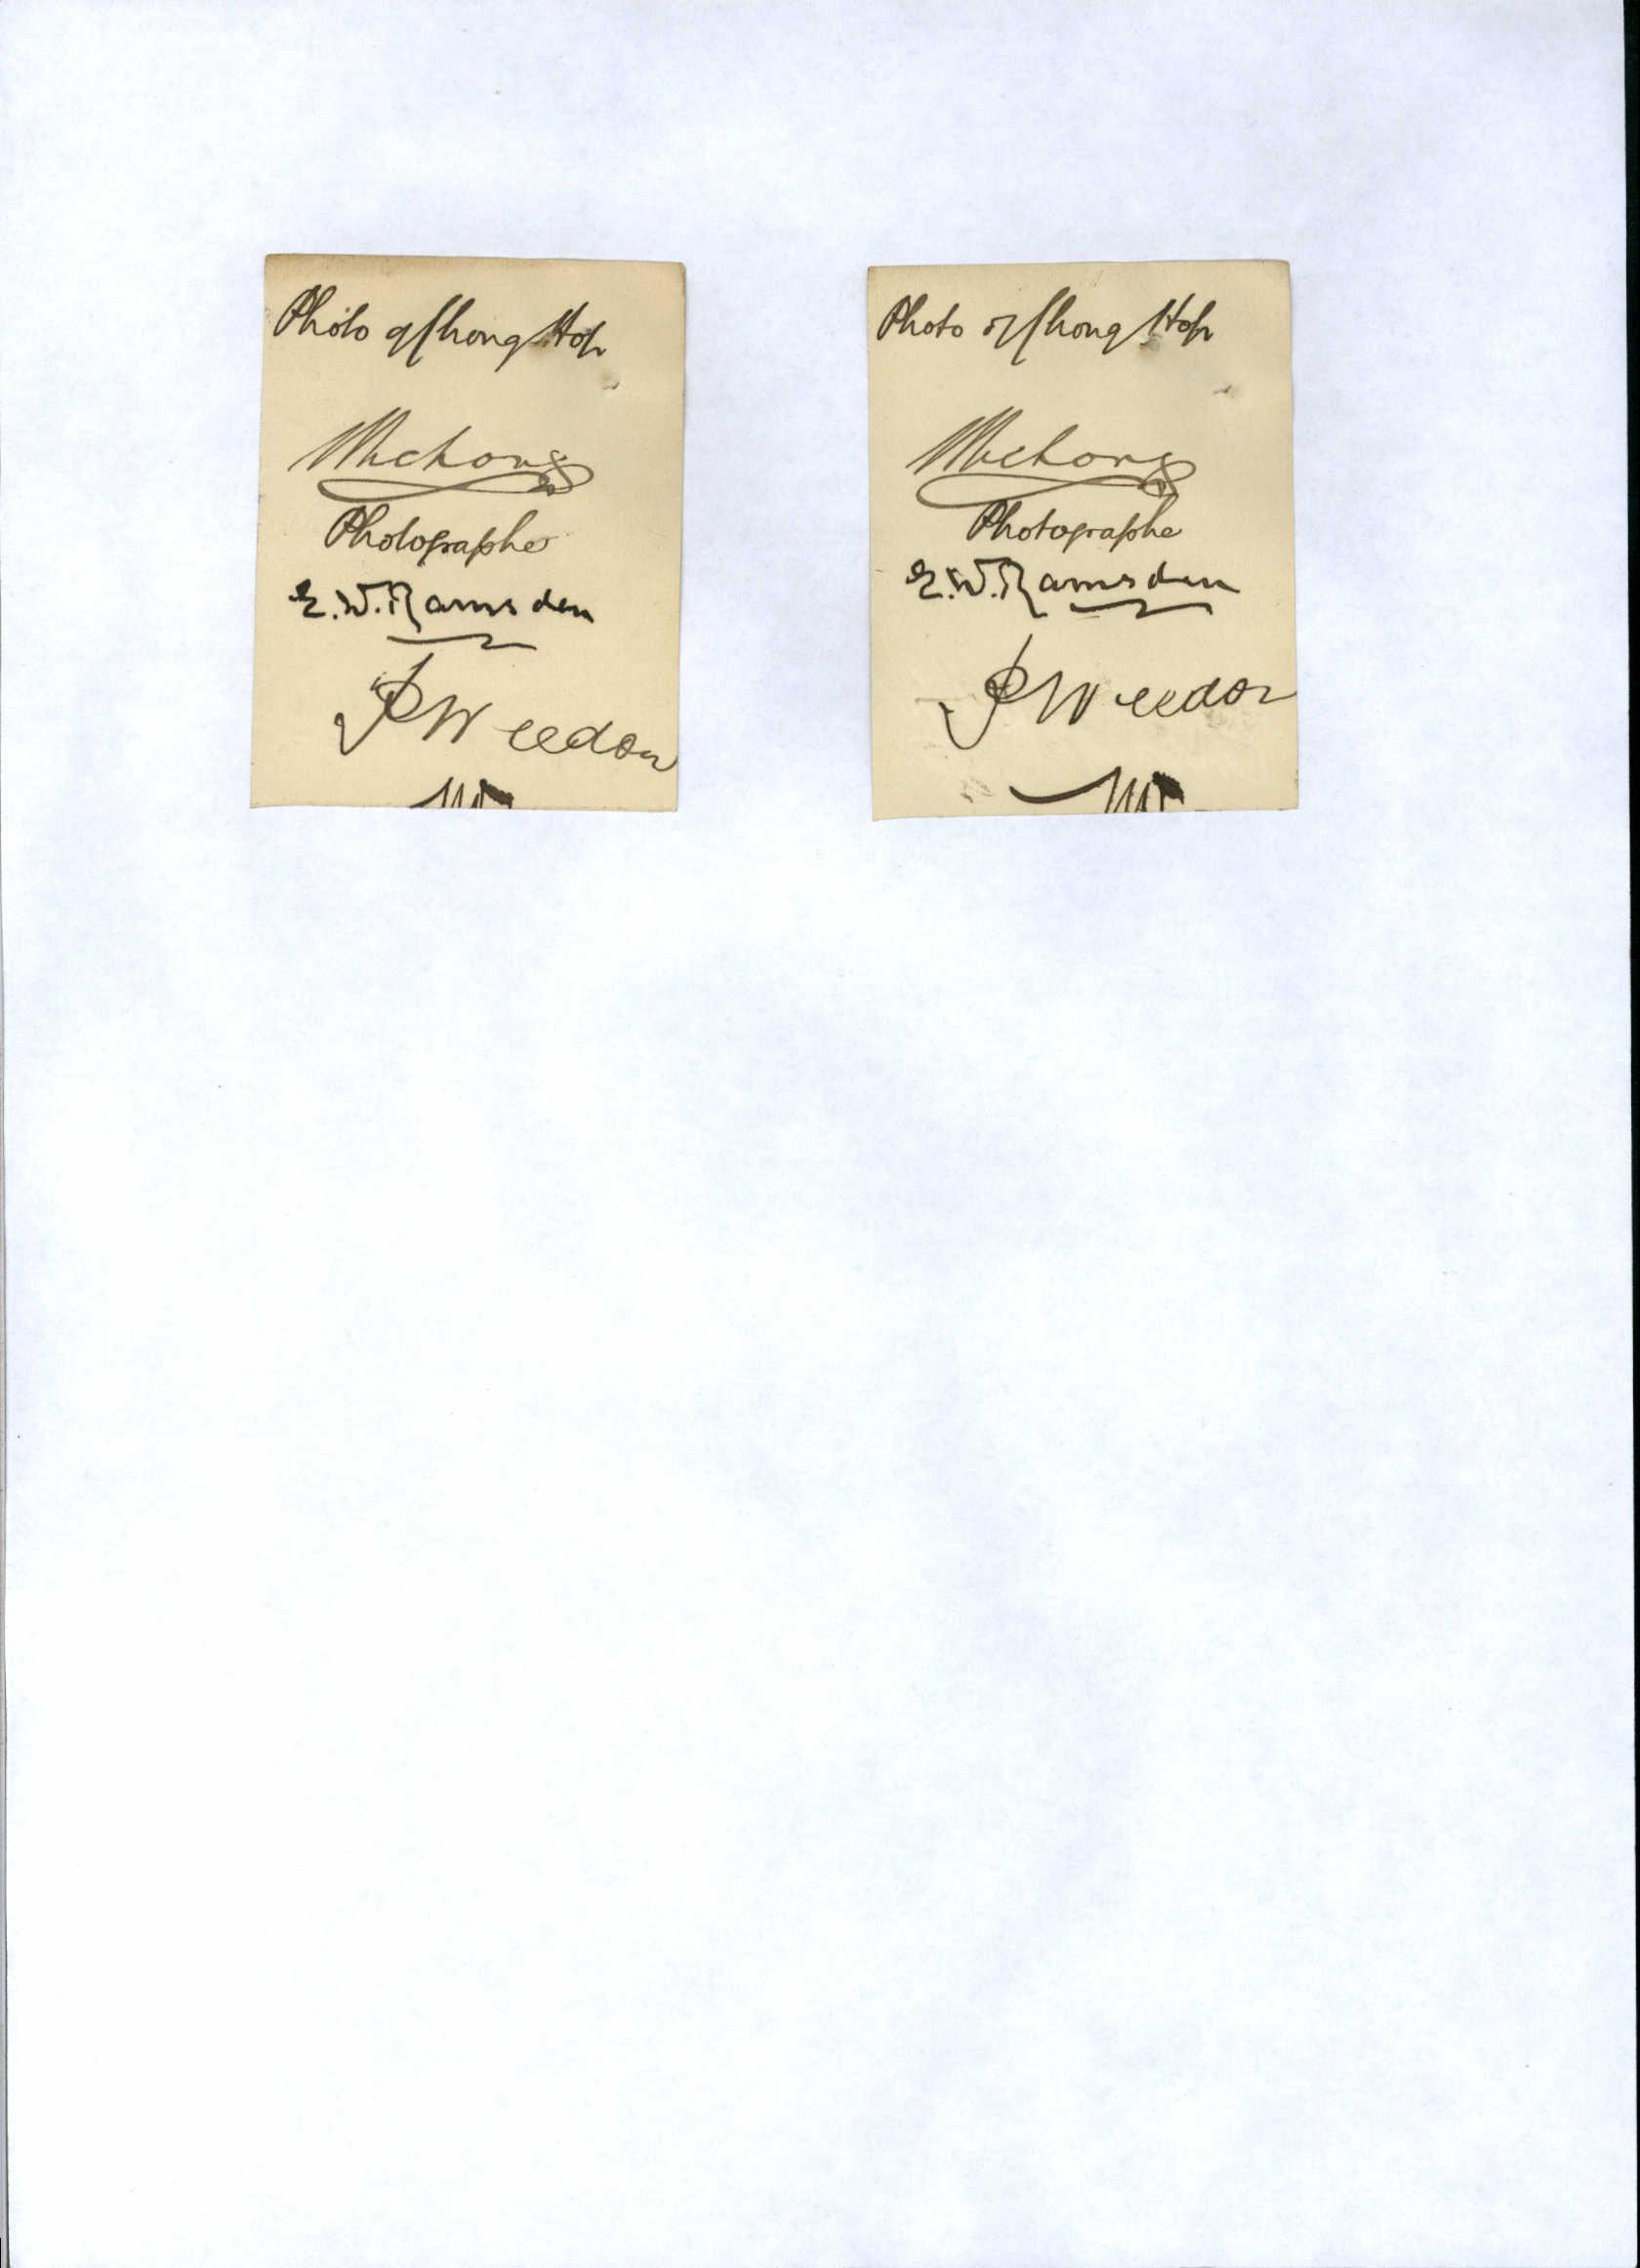 Photo of Chong Hop
Photographe
E.W. Ramsden
Weedon
Photo of Chong Hop
Photographe
E.W. Ramsden
Weedon